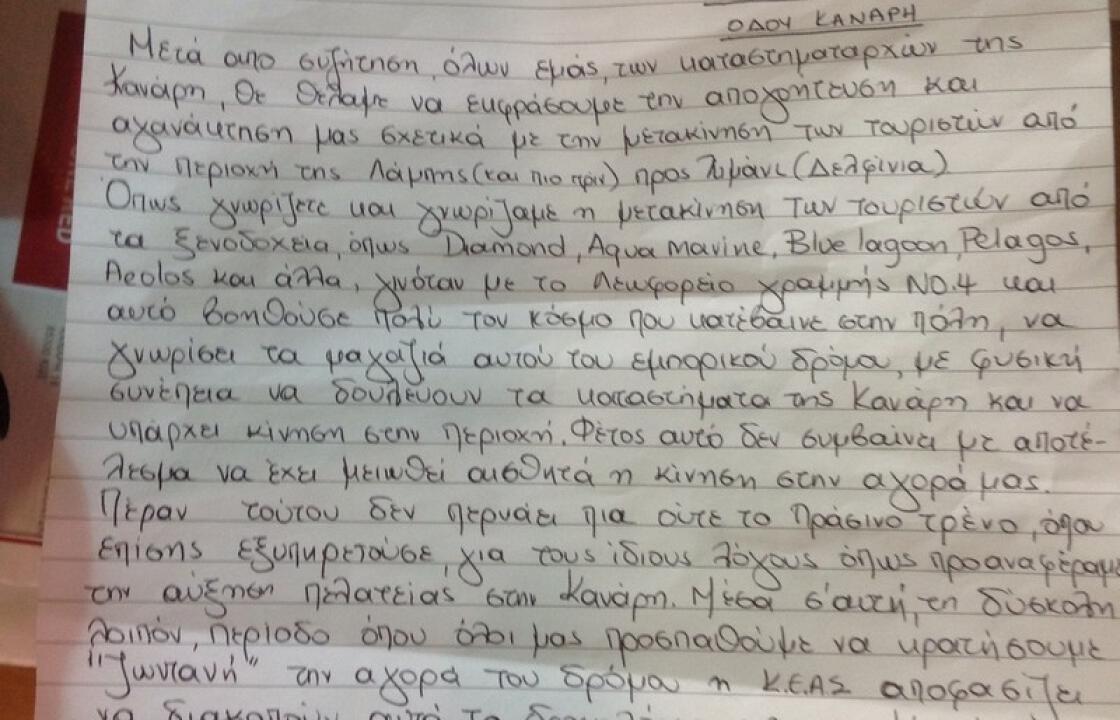 ΟΔΟΥ ΚΑΝΑΡΗ
Μετά απο συζήτηση, όλων εμάς, των καταστηματαρχών της
Κανάρη, θε θέλαμε να εκφράσουμε την απογοήτευση και
αγανάκτηση μας σχετικά με την μετακίνηση των τουριστών από
την περιοχή της Λάμπης (και πιο πριν) προς λιμάνι (Δελφίνια)
Όπως γνωρίζετε και γνωρίζαμε η μετακίνηση των τουριστών από
τα ξενοδοχεία, όπως Diamond, Aqua marine, Blue lagoon, Pelagos,
Aeolos και άλλα, γινόταν με το λεωφορείο γραμμής NO.4 και
αυτό βοηθούσε πολύ τον κόσμο που κατέβαινε στην πόλη, να
γνωρίσει τα μαγαζιά αυτού του εμπορικού δρόμου, με φυσική
συνέπεια να δουλεύουν τα καταστήματα της Κανάρη και να
υπάρχει κίνηση στην περιοχή. Φέτος αυτό δεν συμβαίνει με αποτέ-
λεσμα να έχει μειωθεί αισθητά η κίνηση στην αγορά μας.
Πέραν τούτου δεν περνάει πια ούτε το πράσινο τρένο, όπου
επίσης εξυπηρετούσε, για τους ίδιους λόγους όπως προαναφέραμε
την αύξηση πελατείας στην Κανάρη. Μέσα σ'αυτή, τη δύσκολη
λοιπόν, περίοδο όπου όλοι μας προσπαθούμε να κρατήσουμε
"ζωντανή" την αγορά του δρόμου η Κ.Ε.ΑΣ αποφασίζει
να διακόψει αυτό το